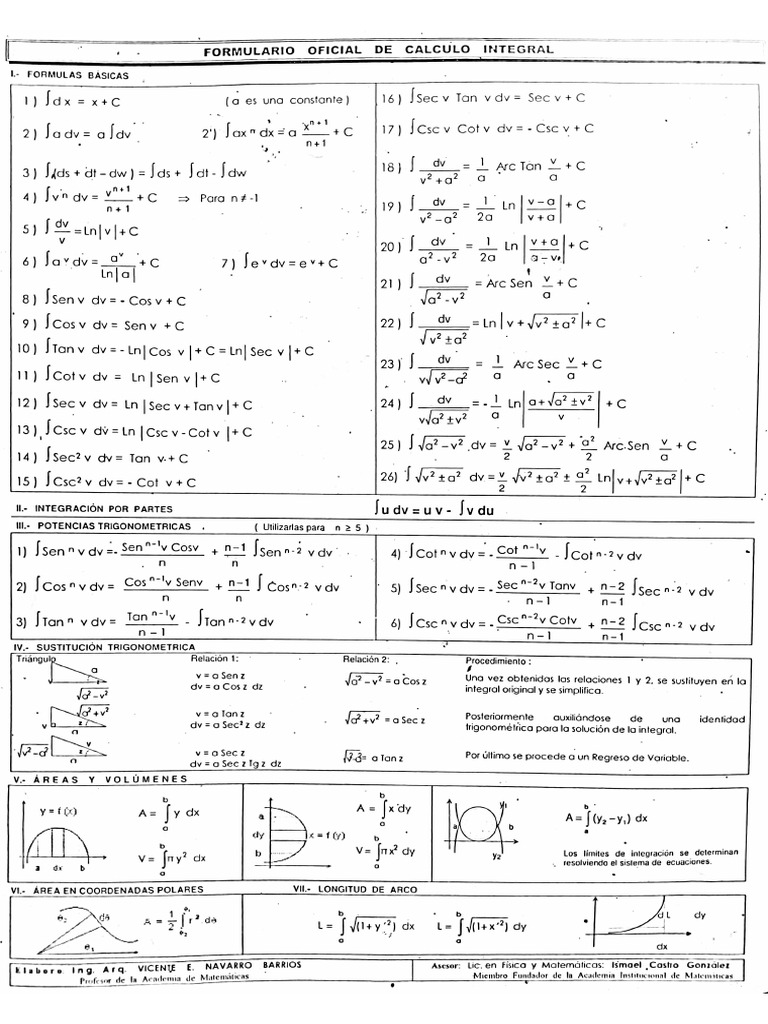 FORMULARIO OFICIAL DE CALCULO INTEGRAL
I.- FORMULAS BÁSICAS
1 ) ∫dx = x + C ( a es una constante )
2 ) ∫a dv = a ∫dv 2') ∫ax^n dx = a x^(n+1)/(n+1) + C
3 ) ∫(ds + dt – dw ) = ∫ds + ∫dt - ∫dw
4 ) ∫v^n dv = v^(n+1)/(n+1) + C ⇒ Para n ≠ -1
5 ) ∫ dv/v = Ln|v| + C
6 ) ∫a^v dv = a^v/Ln|a| + C 7 ) ∫e^v dv = e^v + C
8 ) ∫Sen v dv = - Cos v + C
9 ) ∫Cos v dv = Sen v + C
10 ) ∫Tan v dv = - Ln|Cos v| + C = Ln|Sec v| + C
11 ) ∫Cot v dv = Ln |Sen v| + C
12 ) ∫Sec v dv = Ln |Sec v + Tan v| + C
13 ) ∫Csc v dv = Ln |Csc v - Cot v| + C
14 ) ∫Sec² v dv = Tan v + C
15 ) ∫Csc² v dv = - Cot v + C
16 ) ∫Sec v Tan v dv = Sec v + C
17 ) ∫Csc v Cot v dv = - Csc v + C
18 ) ∫ dv/(v² + a²) = 1/a Arc Tan v/a + C
19 ) ∫ dv/(v² – a²) = 1/2a Ln |(v – a)/(v + a)| + C
20 ) ∫ dv/(a² - v²) = 1/2a Ln |(v + a)/(a – v)| + C
21 ) ∫ dv/√(a² - v²) = Arc Sen v/a + C
22 ) ∫ dv/√(v² ± a²) = Ln | v + √(v² ± a²) | + C
23 ) ∫ dv/(v√(v² – a²)) = 1/a Arc Sec v/a + C
24 ) ∫ dv/(v√(a² ± v²)) = - 1/a Ln |(a + √(a² ± v²))/v| + C
25 ) ∫√(a² – v²) dv = v/2 √(a² – v²) + a²/2 Arc Sen v/a + C
26) ∫√(v² ± a²) dv = v/2 √(v² ± a²) ± a²/2 Ln|v + √(v² ± a²)| + C
II.- INTEGRACIÓN POR PARTES ∫u dv = u v - ∫v du
III.- POTENCIAS TRIGONOMETRICAS . ( Utilizarlas para n ≥ 5 )
1) ∫Sen^n v dv = - Sen^(n–1) v Cosv/n + (n–1)/n ∫Sen^(n-2) v dv
2) ∫Cos^n v dv = Cos^(n–1) v Senv/n + (n–1)/n ∫ Cos^(n-2) v dv
3) ∫Tan^n v dv = Tan^(n–1) v/(n – 1) - ∫Tan^(n-2) v dv
4) ∫Cot^n v dv = - Cot^(n–1) v/(n – 1) - ∫Cot^(n-2) v dv
5) ∫Sec^n v dv = - Sec^(n–2) v Tanv/(n – 1) + (n – 2)/(n – 1) ∫Sec^(n-2) v dv
6) ∫Csc^n v dv = - Csc^(n–2) v Cotv/(n – 1) + (n – 2)/(n – 1) ∫Csc^(n-2) v dv
IV.- SUSTITUCIÓN TRIGONOMETRICA
Triángulo Relación 1: Relación 2: Procedimiento :
a √(a² – v²) v = a Sen z
dv = a Cos z dz
√(a² – v²) = a Cos z
Una vez obtenidas las relaciones 1 y 2, se sustituyen en la
integral original y se simplifica.
√(a² + v²) v z a v = a Tan z
dv = a Sec² z dz
√(a² + v²) = a Sec z
Posteriormente auxiliándose de una identidad
trigonométrica para la solución de la integral.
√(v² – a²) v z a v = a Sec z
dv = a Sec z Tg z dz
= a Tan z
Por último se procede a un Regreso de Variable.
V.- ÁREAS Y VOLÚMENES
y = f (x)
a dx b
A = ∫ₐᵇ y dx
V = ∫ₐᵇ Π y² dx
a
dy
b
x = f (y)
A = ∫ₐᵇ x dy
V = ∫ₐᵇ Π x² dy
y₁
a b
y₂
A = ∫ₐᵇ (y₂ – y₁) dx
Los límites de integración se determinan
resolviendo el sistema de ecuaciones.
VI.- ÁREA EN COORDENADAS POLARES VII.- LONGITUD DE ARCO
L = ∫ₐᵇ √(1 + y'²) dx L = ∫ₐᵇ √(1 + x'²) dy
d L dy
dx
Elaboro Ing. Arq. VICENTE E. NAVARRO BARRIOS
Profesor de la Academia de Matemáticas
Asesor: Lic. en Física y Matemáticas: Ismael Castro González
Miembro Fundador de la Academia Institucional de Matemáticas